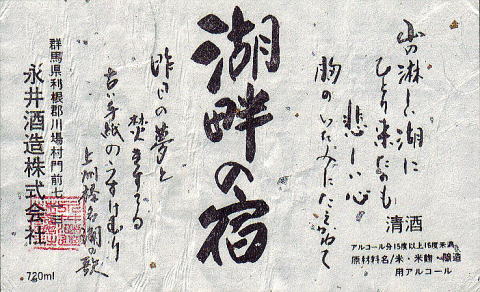 山の淋しい湖に
ひとり来たのも
悲しい心
胸のいたみにたえかねて
清酒
アルコール分15度以上16度未満
原材料名/米・米麹・醸造
用アルコール
湖畔の宿
昨日の夢と
焚きすてる
古い手紙のうすけむり
上州榛名湖の歌
群馬県利根郡川場村門前七
永井酒造株式会社
720ml